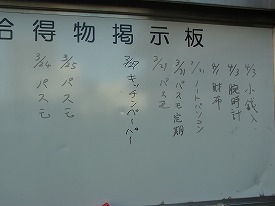 拾得物掲示板
4/3 小銭入
4/3 腕時計
4/1 財布
4/1 ノートパソコン
3/31 パスモ定期
3/29 パスモ
3/27 キッチンペーパー
3/25 パスモ
3/24 パスモ